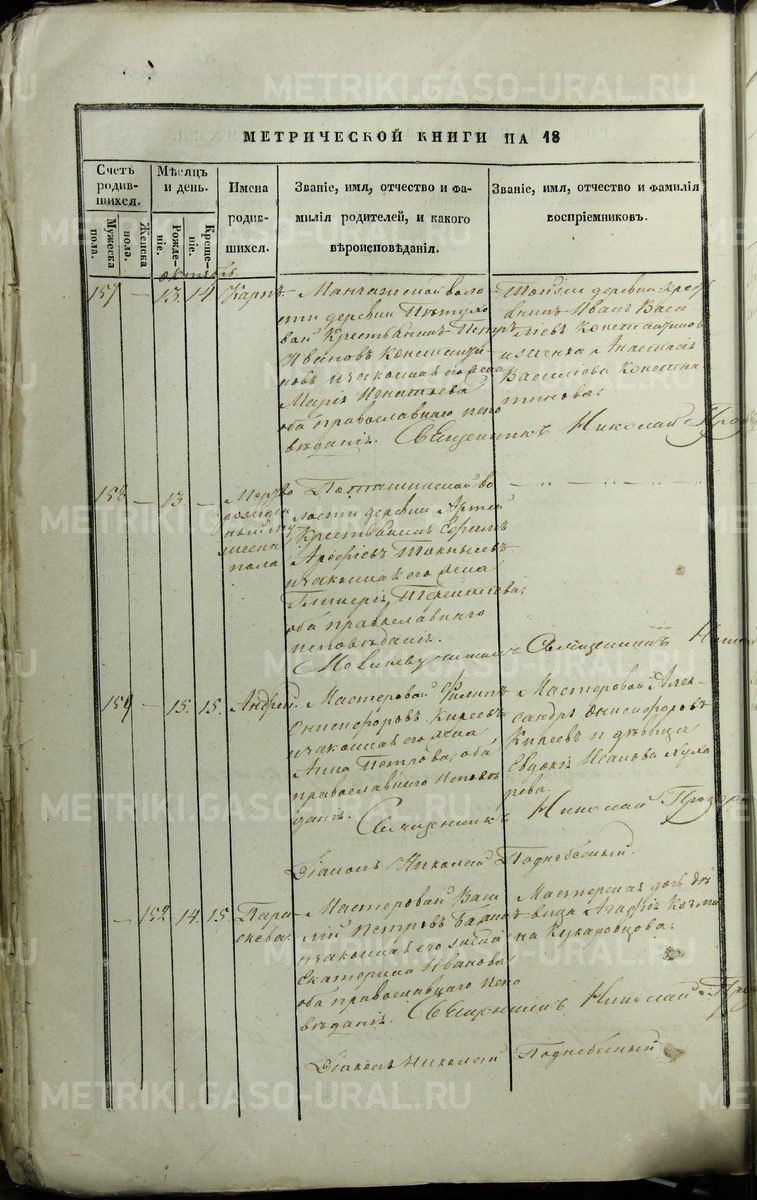 МЕТРИЧЕСКОЙ КНИГИ НА 18
Счетъ родив-шихся.
Мужеска пола.
Женска пола.
Мѣсяцъ и день.
Рожде-ніе.
Креще-ніе.
Имена родив-шихся.
Званіе, имя, отчество и фа-
милія родителей, и какого
вѣроисповѣданія.
Званіе, имя, отчество и фамилія
воспріемниковъ.
октябрь
157 — 13. 14 Карпъ
Манчажской воло
сти деревни
вой Крестьянинъ Петръ
Ивановъ Константи
новъ и законная его жена
Марія Игнатьева
оба православнаго испо
вѣданія.
Тойже деревни Крес
янинъ Иванъ Васи
льевъ Константинов
и Анастасія
Василіева Констан
тинова.
Священникъ Николай
158 — 13 —
Мертво
рожден
ный му
жеска
пола
Поташинской во
лости деревни Артей
Крестьянинъ Ефимъ
и законная его жена
Гликерія
оба православнаго
исповѣданія.
— „ — „ — „ —
Священникъ
159 — 15. 15. Андрей.
Мастеровой Филипъ
Онисифоровъ Киреевъ
и законная его жена
Анна Петрова, оба
православнаго Исповѣ
данія.
Мастеровой Алек-
сандръ Онисифоровъ
Киреевъ и дѣвица
Евдокія Исакова
Священникъ Николай
Діаконъ Николай Поднебесный.
— 152. 14. 15. Пара
скева.
Мастеровой Васи
лій Петровъ
и законная его жена
Екатерина Иванова,
оба православнаго испо
вѣданія.
Мастерская дочь дѣ
вица Агафія Козми
на
Священникъ Николай
Діаконъ Николай Поднебесный
METRIKI.GASO-URAL.RU